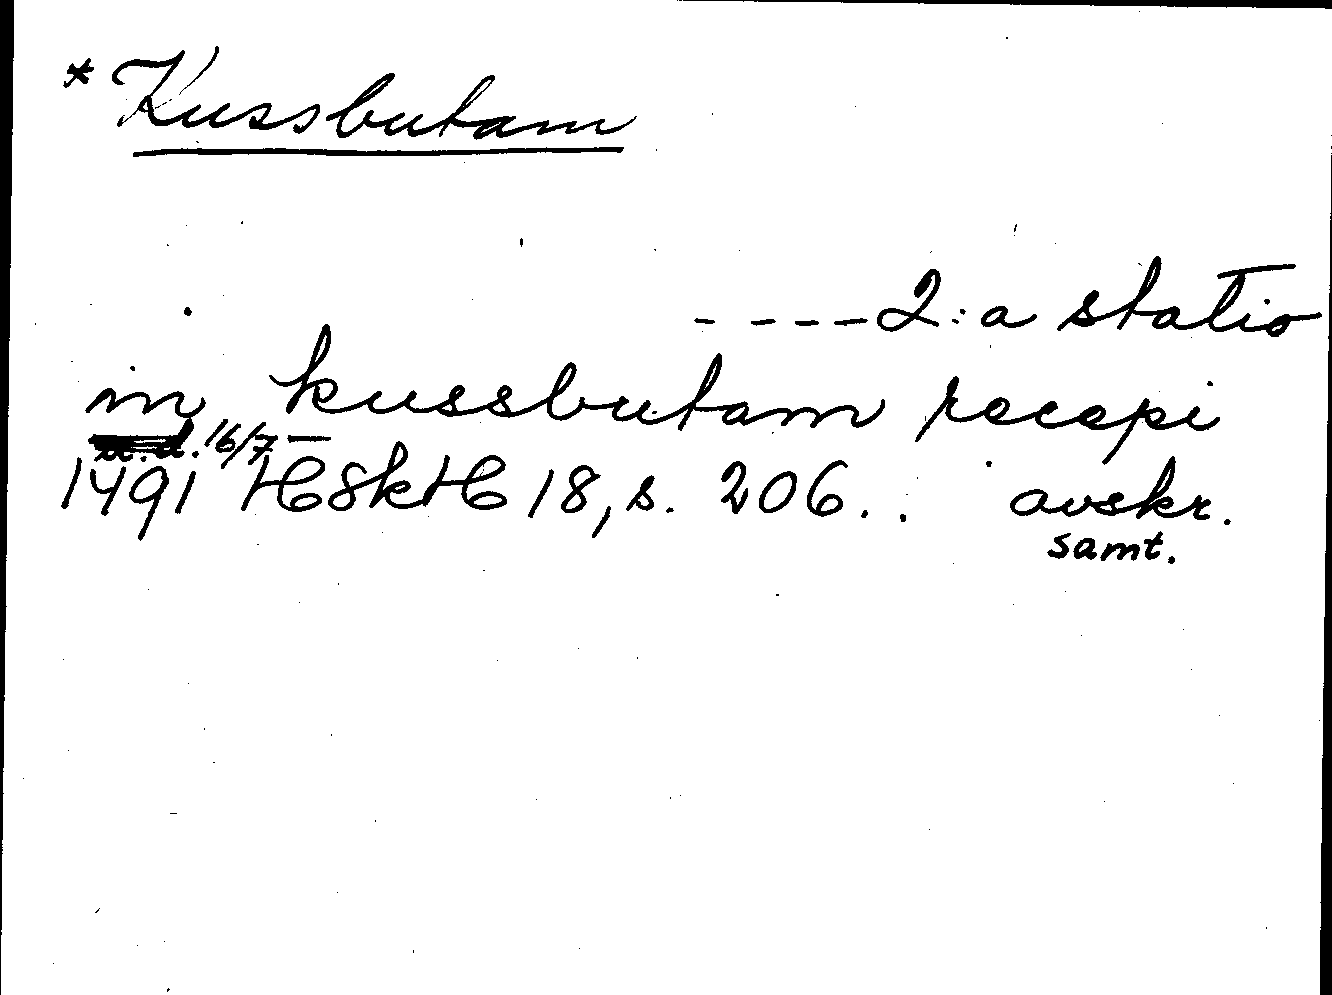 * Kussbutam
- - - - 2:a statio
in kussbutam recepi
16/7 –
1491 HSkH 18, s. 206. . avskr.
samt.